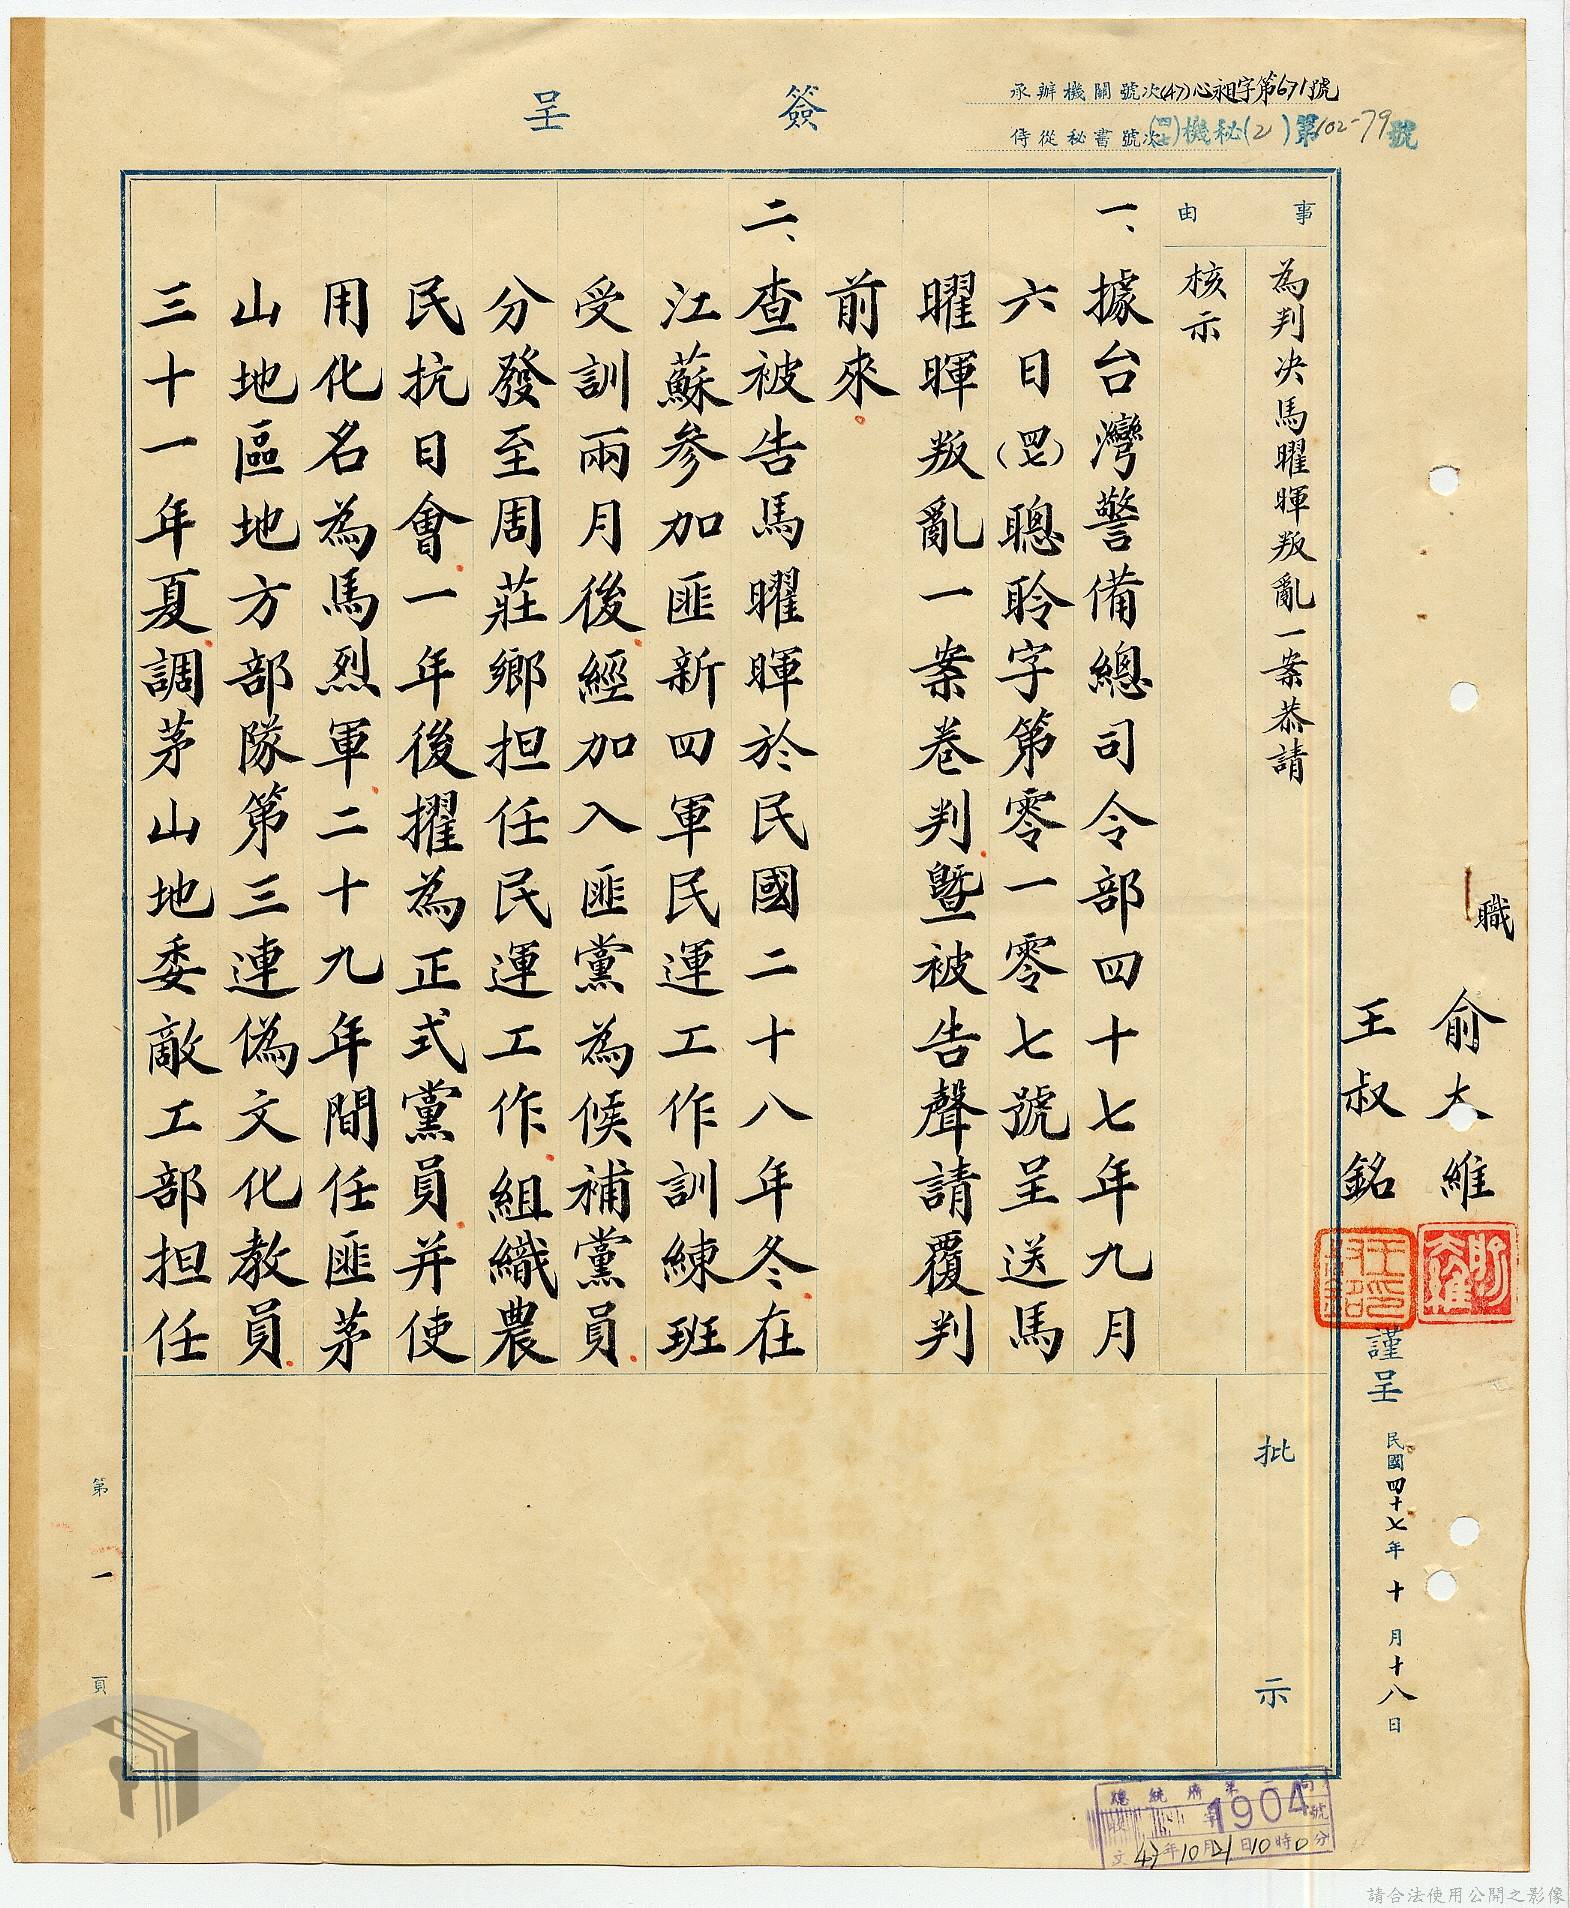 簽呈
承辦機關號次(47)心昶字第671號
侍從秘書號次(四七)機秘(2)第102-79號
事由
為判決馬曜暉叛亂一案恭請
核示
一、據台灣警備總司令部四十七年九月
六日(四七)聰聆字第零一零七號呈送馬
曜暉叛亂一案卷判暨被告聲請覆判
前來
二、查被告馬曜暉於民國二十八年冬在
江蘇參加匪新四軍民運工作訓練班
受訓兩月後經加入匪黨為候補黨員
分發至周莊鄉担任民運工作組織農
民抗日會一年後擢為正式黨員并使
用化名為馬烈軍二十九年間任匪茅
山地區地方部隊第三連偽文化教員
三十一年夏調茅山地委敵工部担任
批示
職
俞大維
王叔銘
謹呈
民國四十七年十月十八日
第一頁
總統府第二局
收文 字1904號
47年10月21日10時0分
請合法使用公開之影像